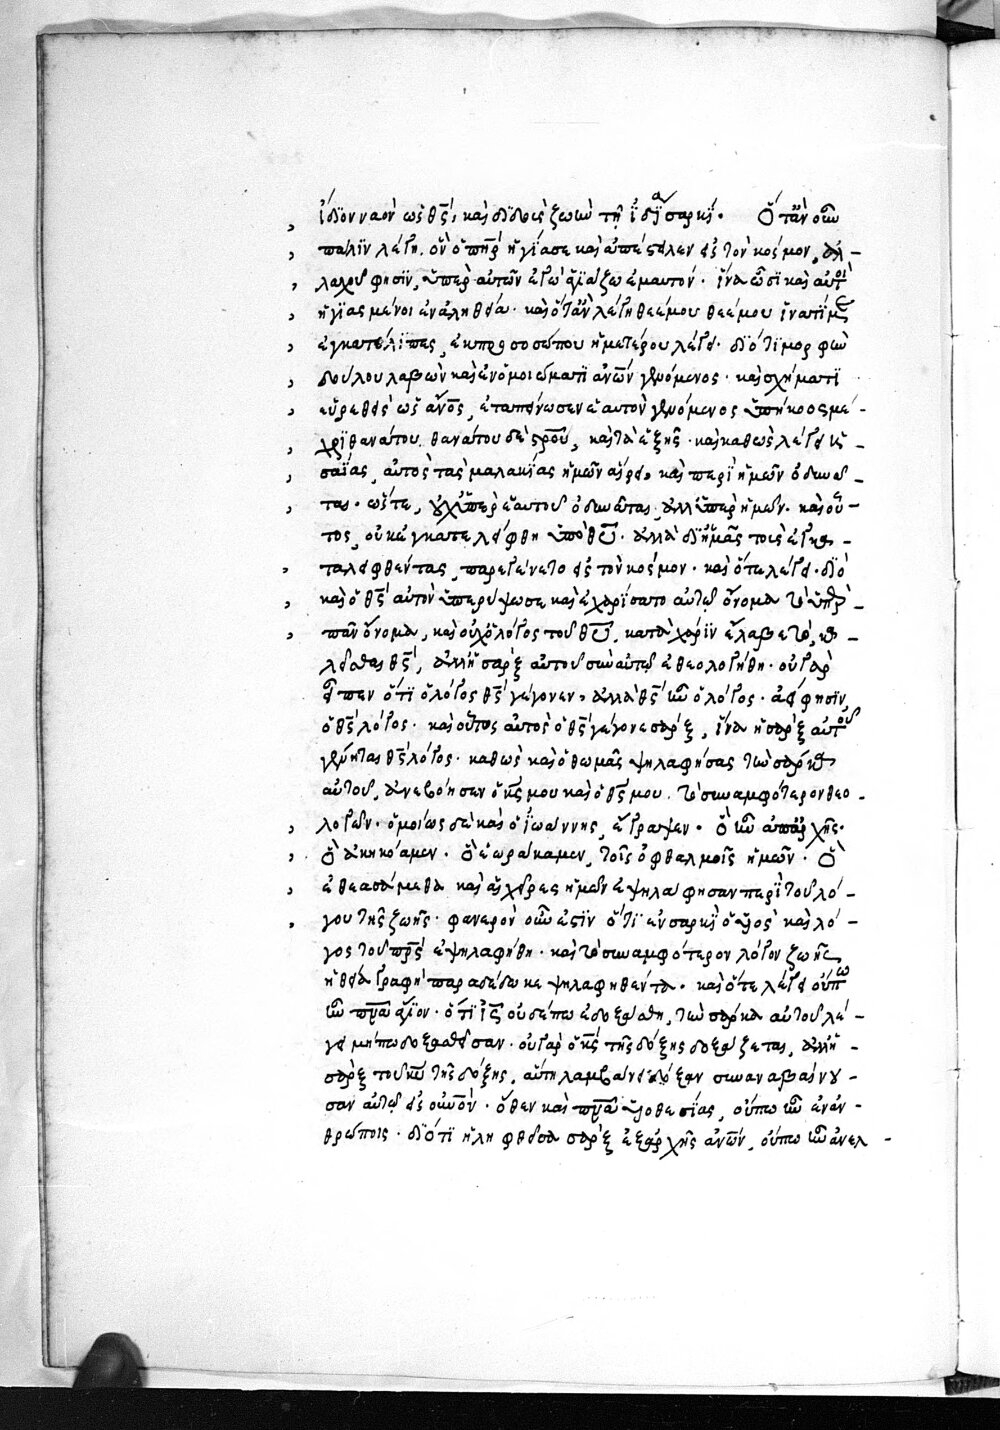 ἴδιον ναὸν ὡς θς̅, καὶ διδοὺς ζωὴν τῇ ἰδίᾳ σαρκί. Ὅταν οὖν
πάλιν λέγῃ, ὃν ὁ πη̅ρ ἡγίασε καὶ ἀπέστειλεν εἰς τὸν κόσμον, ἀλ-
λαχοῦ φησὶν, ὑπὲρ αὐτῶν ἐγὼ ἁγιάζω ἐμαυτόν. ἵνα ὦσι καὶ αὐτοὶ
ἡγιασμένοι ἐν ἀληθείᾳ. καὶ ὅταν λέγῃ θεέ μου θεέ μου ἱνατί με
ἐγκατέλιπες, ἐκ προσώπου ἡμετέρου λέγει. διότι μορφὴν
δούλου λαβὼν καὶ ἐν ὁμοιώματι ἀνω̅ν γενόμενος. καὶ σχήματι
εὑρεθεὶς ὡς ἄνο̅ς, ἐταπείνωσεν ἑαυτὸν γενόμενος ὑπήκοος μέ-
χρι θανάτου, θανάτου δὲ στρο̅υ, καὶ τὰ ἑξῆς. καὶ καθὼς λέγει ἡ-
σαΐας, αὐτὸς τὰς μαλακίας ἡμῶν αἴρει, καὶ περὶ ἡμῶν ὀδυνᾶ-
ται. ὥστε, οὐχ ὑπὲρ ἑαυτοῦ ὀδυνᾶται, ἀλλ' ὑπὲρ ἡμῶν. καὶ οὗ-
τος, οὐκ ἐγκατελείφθη ὑπὸ θυ̅. ἀλλὰ δι' ἡμᾶς τοὺς ἐγκα-
ταλειφθέντας, παρεγένετο εἰς τὸν κόσμον. καὶ ὅτε λέγει. διὸ
καὶ ὁ θς̅ αὐτὸν ὑπερύψωσε, καὶ ἐχαρίσατο αὐτῷ ὄνομα τὸ ὑπὲρ
πᾶν ὄνομα, καὶ οὐχ ὁ λόγος τοῦ θυ̅, κατὰ χάριν ἔλαβε τὸ, κα-
λεῖσθαι θς̅, ἀλλ' ἡ σὰρξ αὐτοῦ σὺν αὐτῷ ἐθεολογήθη. οὐ γὰρ
εἶπεν ὅτι ὁ λόγος θς̅ γέγονεν, ἀλλὰ θς̅ ἦν ὁ λόγος. ἀεί φησιν
ὁ θς̅ λόγος. καὶ οὗτος αὐτὸς ὁ θς̅ γέγονε σάρξ, ἵνα ἡ σὰρξ αὐτοῦ
γένηται θς̅ λόγος. καθὼς καὶ ὁ θωμᾶς ψηλαφήσας τὴν σάρκα
αὐτοῦ, ἀνεβόησεν ὁ κς̅ μου καὶ ὁ θς̅ μου. τὸ συναμφότερον θεο-
λογῶν. ὁμοίως δὲ καὶ ὁ ἰωάννης, ἔγραψεν. ὃ ἦν ἀπ' ἀρχῆς.
ὃ ἀκηκόαμεν. ὃ ἑωράκαμεν, τοῖς ὀφθαλμοῖς ἡμῶν. ὃ
ἐθεασάμεθα καὶ αἱ χεῖρες ἡμῶν ἐψηλάφησαν περὶ τοῦ λό-
γου τῆς ζωῆς. φανερὸν οὖν ἐστὶν ὅτι ἐν σαρκὶ ὁ υἱὸς καὶ λό-
γος τοῦ πρς̅ ἐψηλαφήθη. καὶ τὸ συναμφότερον λόγον ζωῆς
ἡ θεία γραφὴ παραδέδωκε ψηλαφηθέντα. καὶ ὅτε λέγει οὔπω
ἦν πνα̅ ἅγιον. ὅτι ις̅ οὐδέπω ἐδοξάσθη, τὴν σάρκα αὐτοῦ λέ-
γει μήπω δοξασθεῖσαν. οὐ γὰρ ὁ κς̅ τῆς δόξης δοξάζεται, ἀλλ' ἡ
σὰρξ τοῦ κυ̅ τῆς δόξης, αὐτὴ λαμβάνει δόξαν συναναβαίνου-
σαν αὐτῷ εἰς οὐνο̅ν. ὅθεν καὶ πνα̅ υἱοθεσίας, οὔπω ἦν ἐν ἀν-
θρώποις. διότι ἡ ληφθεῖσα σὰρξ ἐξ ἀρχῆς ἀνω̅ν, οὔπω ἦν ἀνελ-